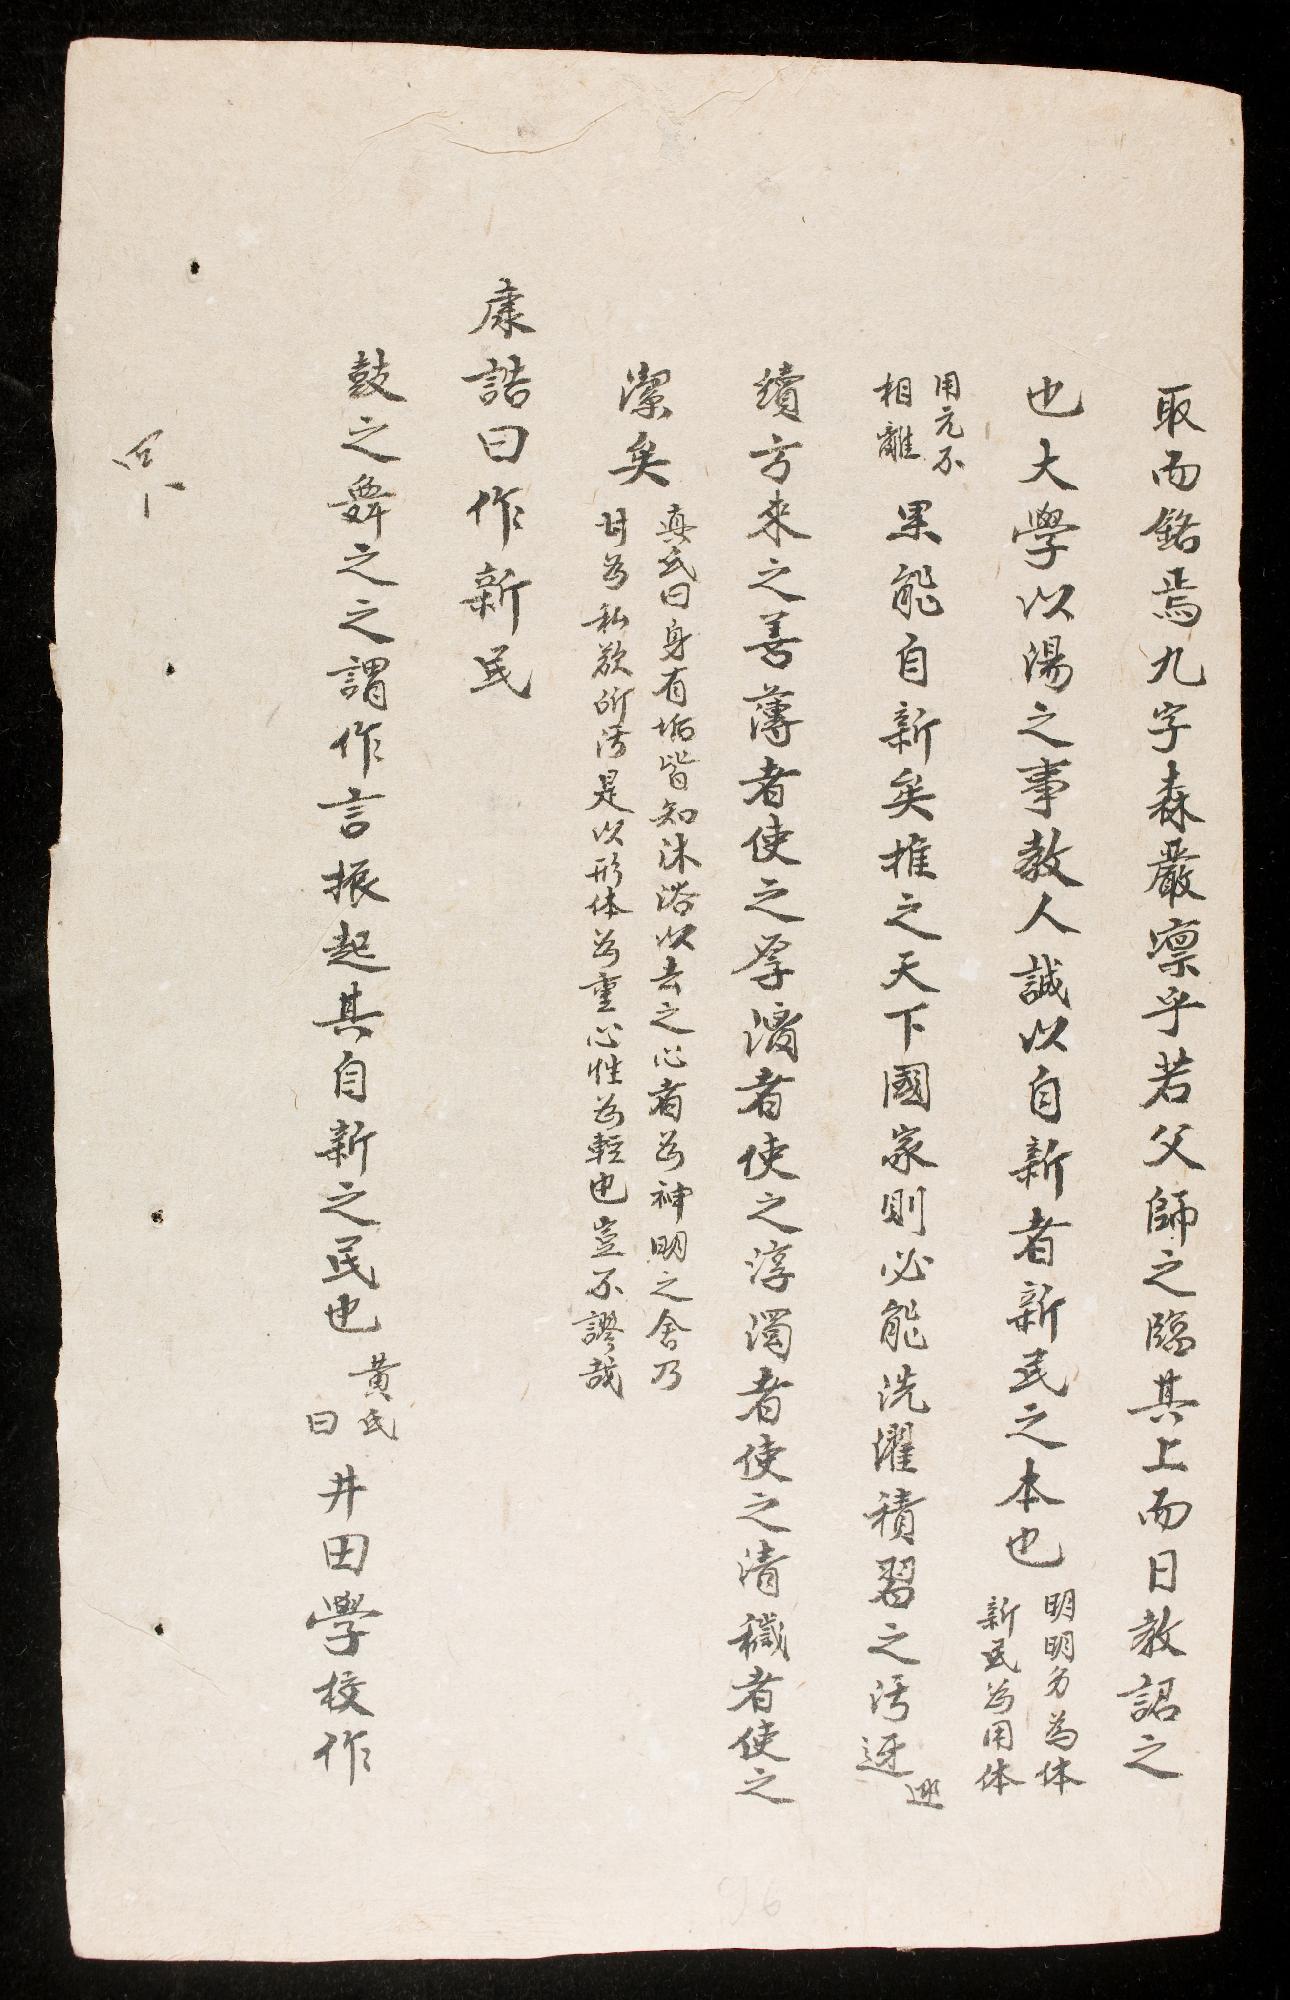 取而銘焉九字森嚴凛乎若父師之臨其上而日教詔之
也大學以湯之事教人誠以自新者新民之本也
明明为為体
新民為用体
用元不
相離
果能自新矣推之天下國家則必能洗濯積習之污迓
迎
續方来之善薄者使之厚漓者使之淳濁者使之清穢者使之
潔矣
真氏曰身有垢皆知沐浴以去之心者為神明之舍乃
甘為私欲所污是以形体為重心性為軽也豈不謬哉
康誥曰作新民
鼓之舞之之謂作言振起其自新之民也
黄氏
曰
井田學校作
96